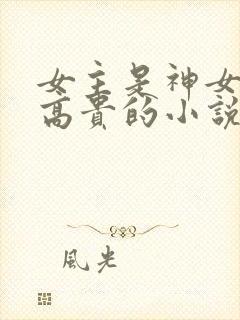 女主是神女
高贵的小說
風光